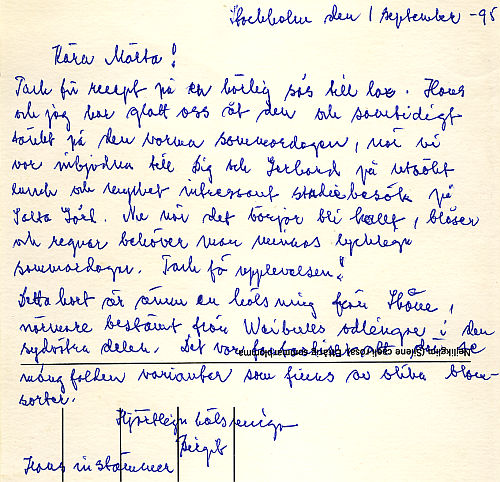 Stockholm den 1 september -95
Kära Märta!
Tack för recept på en härlig sås till lax. Hans
och jag har glatt oss åt den och samtidigt
tänkt på den varma sommardagen, när vi
var inbjudna till Dig och Gerhard på utsökt
lunch och mycket intressant studiebesök på
Gård. Nu när det börjar bli kallt, blåser
och regnar behöver man minnas lyckliga
sommardagar. Tack för upplevelsen!
Detta kort är ännu en hälsning från Skåne,
närmare bestämt från Weibulls odlingar i den
sydvästra delen. Det var att där se
mångfalden varianter som finns av olika blom-
sorter.
Hjärtliga hälsningar
Birgit
Hans instämmer